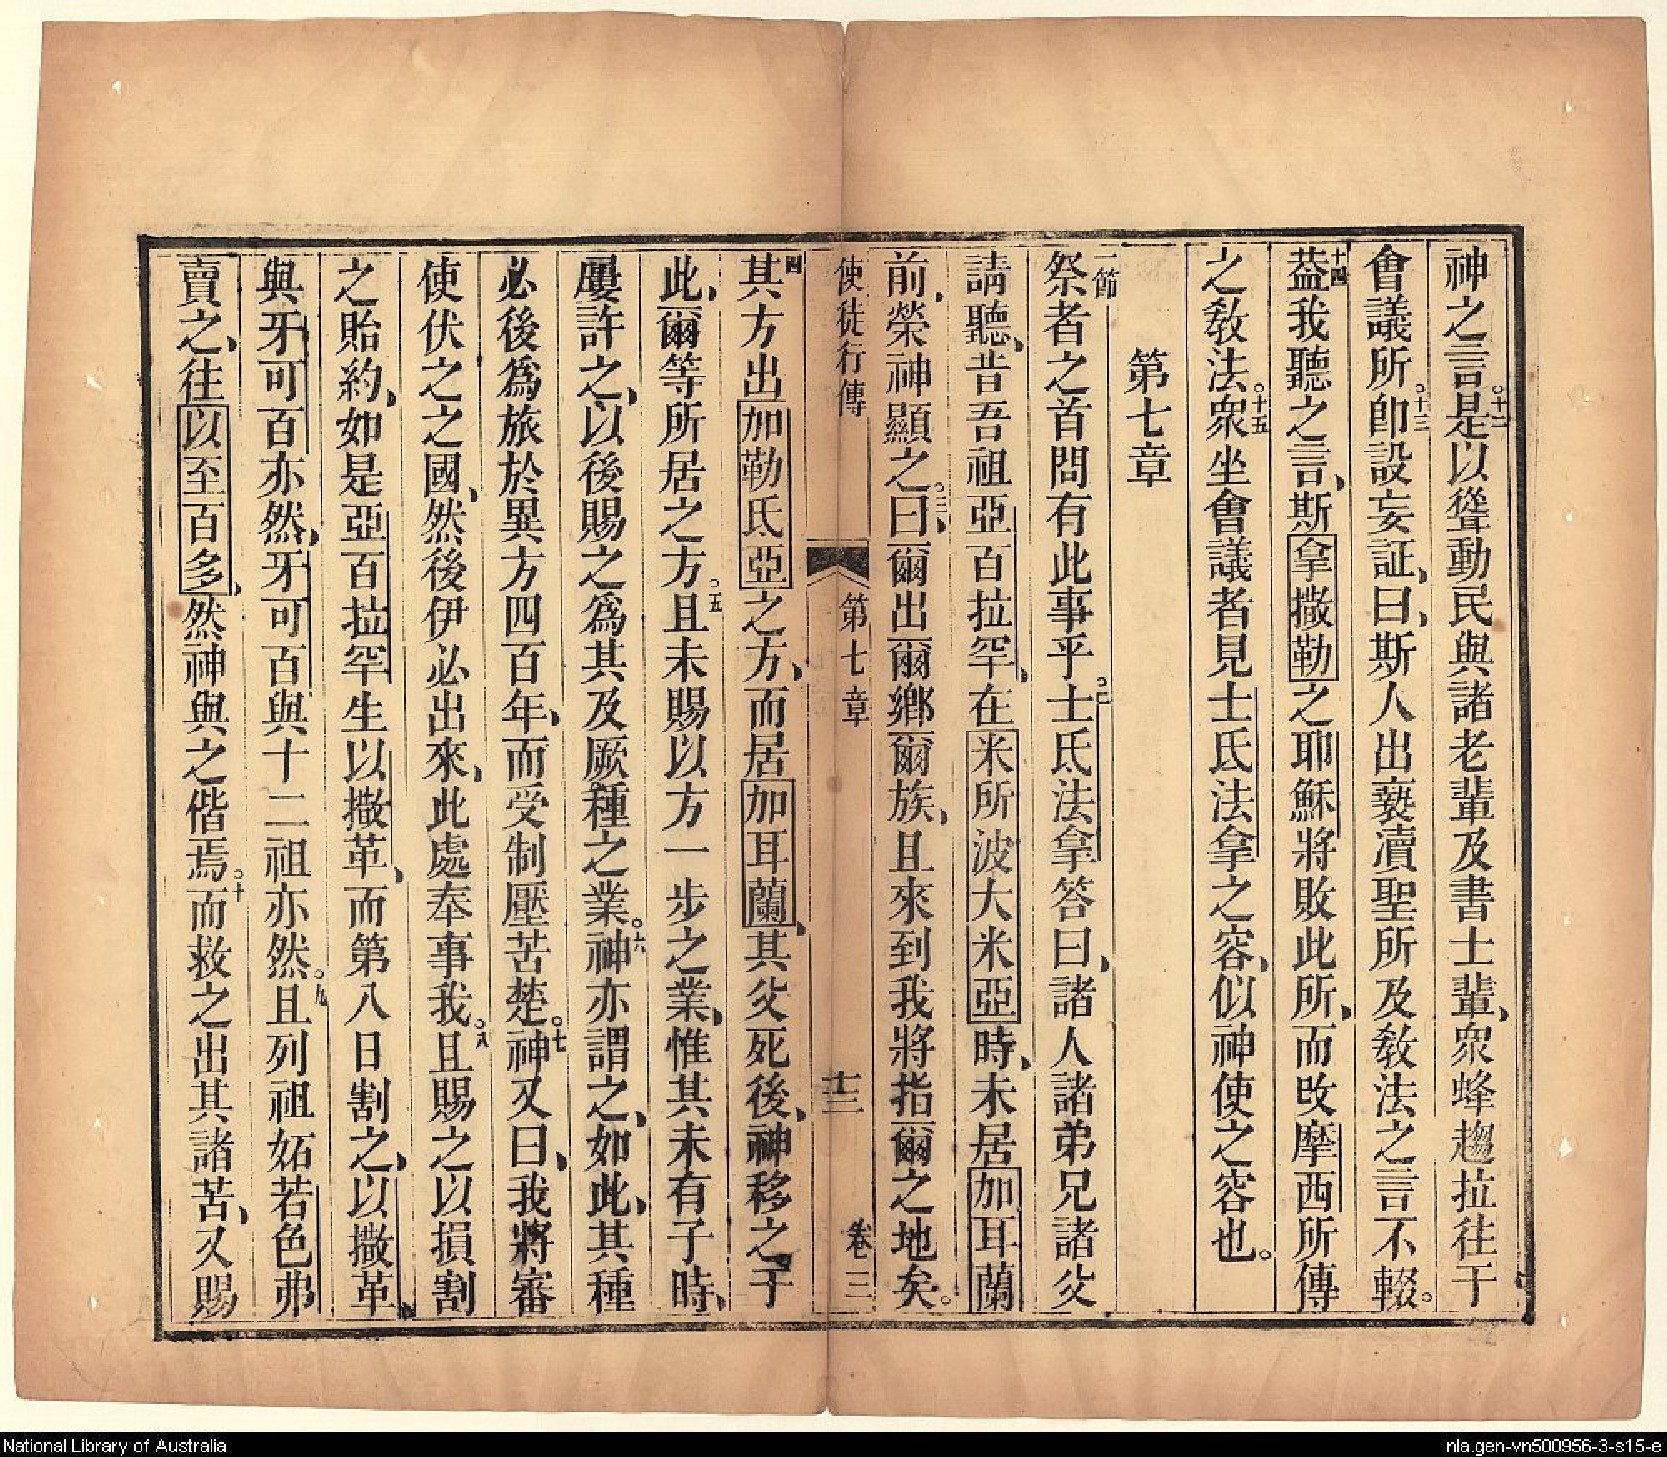 神之言。十二是以聳動民與諸老輩及書士輩、衆蜂趨拉往于
會議所。十三卽設妄証、曰、斯人出䙝瀆聖所及敎法之言不輟。
十四葢我聽之言、斯拿撒勒之耶穌將敗此所、而改摩西所傳
之敎法。十五衆坐會議者見士氐法拿之容、似神使之容也。
第七章
一節祭者之首問有此事乎。二士氐法拿答曰、諸人諸弟兄諸父
請聽、昔吾祖亞百拉罕、在米所波大米亞時、未居加耳蘭
前、榮神顯之。三曰、爾出爾鄉爾族、且來到我將指爾之地矣。
使徒行傳 第七章 十三 卷三
四其方出加勒氐亞之方、而居加耳蘭、其父死後、神移之于
此、爾等所居之方。五且未賜以方一步之業、惟其未有子時、
屢許之、以後賜之爲其及厥種之業。六神亦謂之、如此、其種
必後爲旅於異方四百年、而受制壓苦楚。七神又曰、我將審
使伏之之國、然後伊必出來、此處奉事我。八且賜之以損割
之貽約、如是亞百拉罕生以撒革、而第八日割之、以撒革、
與牙可百亦然、牙可百與十二祖亦然。九且列祖妬若色弗
賣之、往以至百多、然神與之偕焉。十而救之出其諸苦、又賜
National Library of Australia
nla.gen-vn500956-3-s15-e